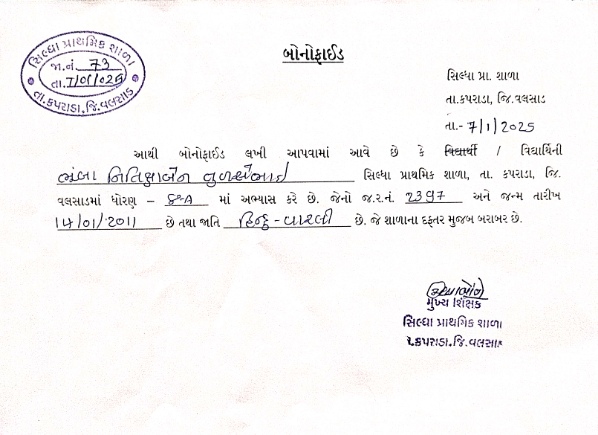 સિલ્ધા પ્રાથમિક શાળા
જા.નં. 73
તા. 7/01/025
તા.કપરાડા, જિ.વલસાડ
બોનોફાઈડ
સિલ્ધા પ્રા. શાળા
તા.કપરાડા, જિ.વલસાડ
તા.- 7/1/2025
આથી બોનોફાઈડ લખી આપવામાં આવે છે કે વિદ્યાર્થી / વિદ્યાર્થિની
નિતિક્ષાબેન સિલ્ધા પ્રાથમિક શાળા, તા. કપરાડા, જિ.
વલસાડમાં ધોરણ – માં અભ્યાસ કરે છે. જેનો જ.ર.નં. 2397 અને જન્મ તારીખ
14/01/2011 છે તથા જાતિ હિન્દુ - વારલી છે. જે શાળાના દફતર મુજબ બરાબર છે.
મુખ્ય શિક્ષક
સિલ્ધા પ્રાથમિક શાળા
.કપરાડા.જિ.વલસા